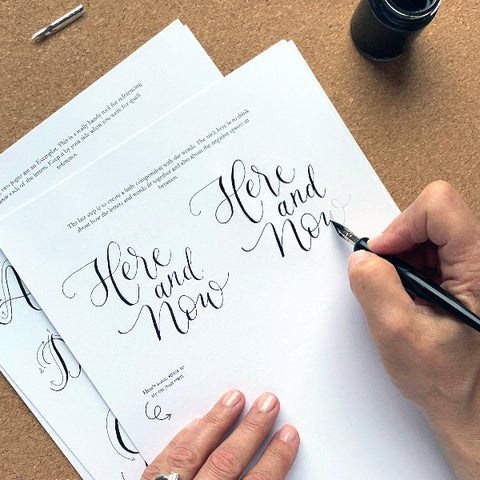 two pages are an Exemplar. This is a really handy tool for referencing
each of the letters. Keep it by your side when you want for quick
reference.
The last step is to create a little composition with the words. The trick here is to think
about how the letters and words fit together and also about the negative spaces in
between.
Here
and
Now
Here
and
Now
Here's some space to
try on your own
A